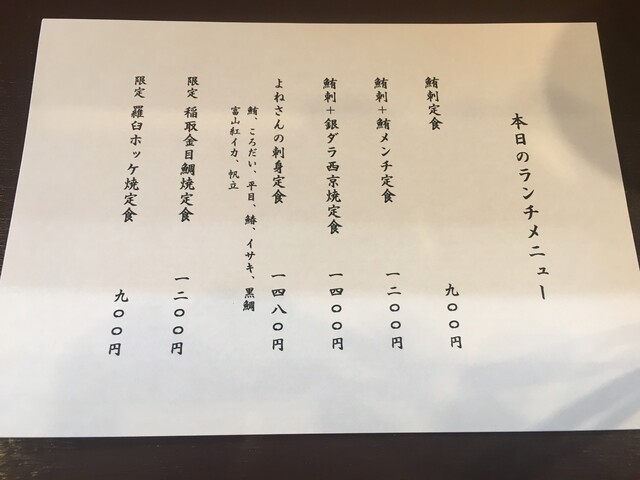 本日のランチメニュー
鮪刺定食 九〇〇円
鮪刺＋鮪メンチ定食 一二〇〇円
鮪刺＋銀ダラ西京焼定食 一四〇〇円
よねさんの刺身定食 一四八〇円
鮪、ころだい、平目、鰆、イサキ、黒鯛
富山紅イカ、帆立
限定 稲取金目鯛焼定食 一二〇〇円
限定 羅臼ホッケ焼定食 九〇〇円